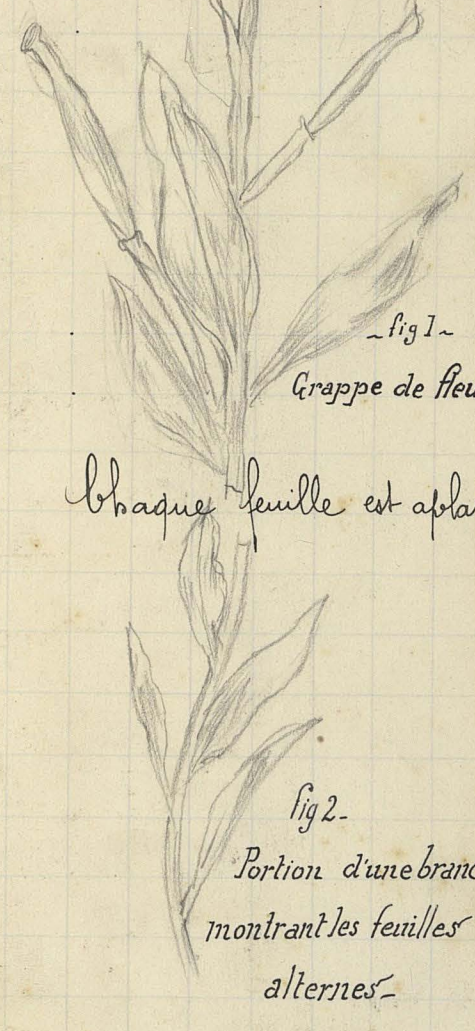 _ fig 1 _
Grappe de fleu
Chaque feuille est apla
fig 2 _
Portion d'une branc
montrant les feuilles
alternes _